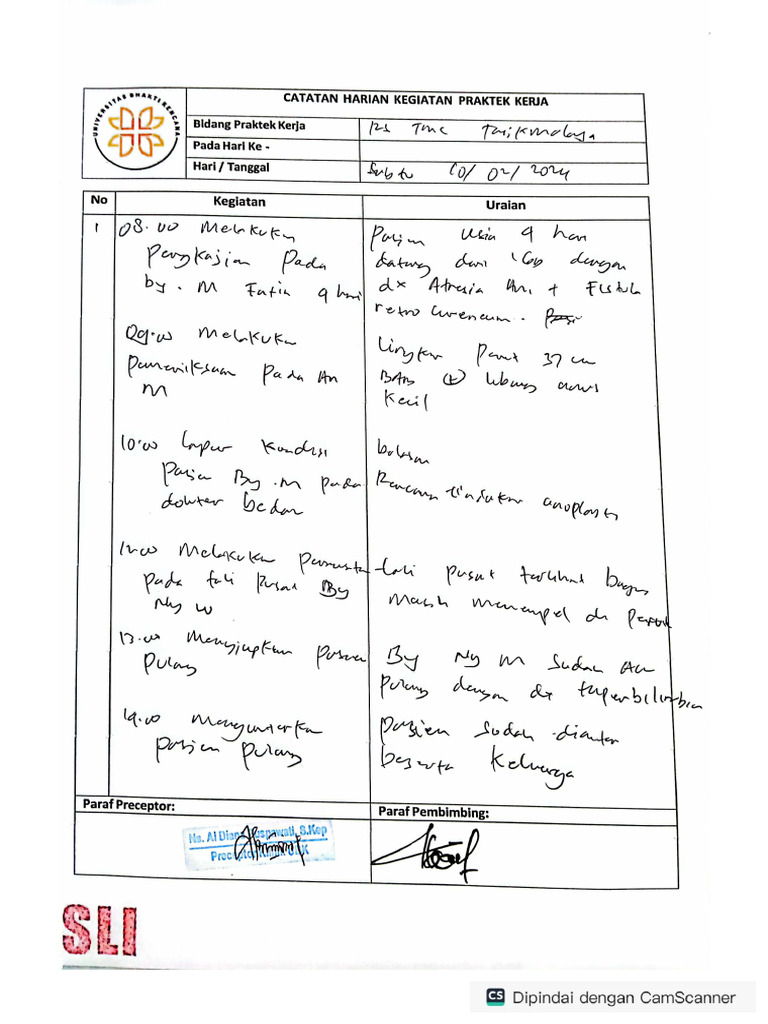 UNIVERSITAS BHAKTI KENCANA
CATATAN HARIAN KEGIATAN PRAKTEK KERJA
Bidang Praktek Kerja
RS TMC Tasikmalaya
Pada Hari Ke -
Hari / Tanggal
Sabtu 10/02/2024
No
Kegiatan
Uraian
1
08.00 Melakukan
Pengkajian Pada
by. M 9 hari
Pasien usia 9 hari
datang dari IGD dengan
dx Atresia Ani + Fistula
retro
09.00 Melakukan
Pemeriksaan Pada An
M
Lingkar Perut 37 cm
BAB (+) lubang anus
Kecil
10.00 Lapor Kondisi
Pasien By. M pada
dokter bedah
balasan
Rencana tindakan anoplasty
12.00 Melakukan
pada tali Pusat By
Ny W
tali pusat terlihat bagus
Masih menempel di perut
13.00 Menyiapkan Pasien
Pulang
By Ny M Sudah Acc
pulang dengan dx hiperbilirubin
14.00 Mengantarkan
pasien pulang
pasien sudah diantar
beserta keluarga
Paraf Preceptor:
Paraf Pembimbing:
Ns. Ai Dian S.Kep
SLI
CS Dipindai dengan CamScanner